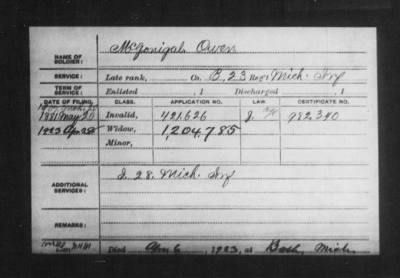 NAME OF SOLDIER: McGonigal, Owen
SERVICE: Late rank, Co. B, 23 Reg't Mich. Inf
TERM OF SERVICE: Enlisted , 1 Discharged , 1
DATE OF FILING. CLASS. APPLICATION NO. LAW. CERTIFICATE NO.
1881 May 20 Invalid, 421,626 J. 982,340
1923 Apr 28 Widow, 1,204,785
Minor,
ADDITIONAL SERVICES: I. 28. Mich. Inf
REMARKS:
Died Apr 6, 1923, at Bath, Mich.